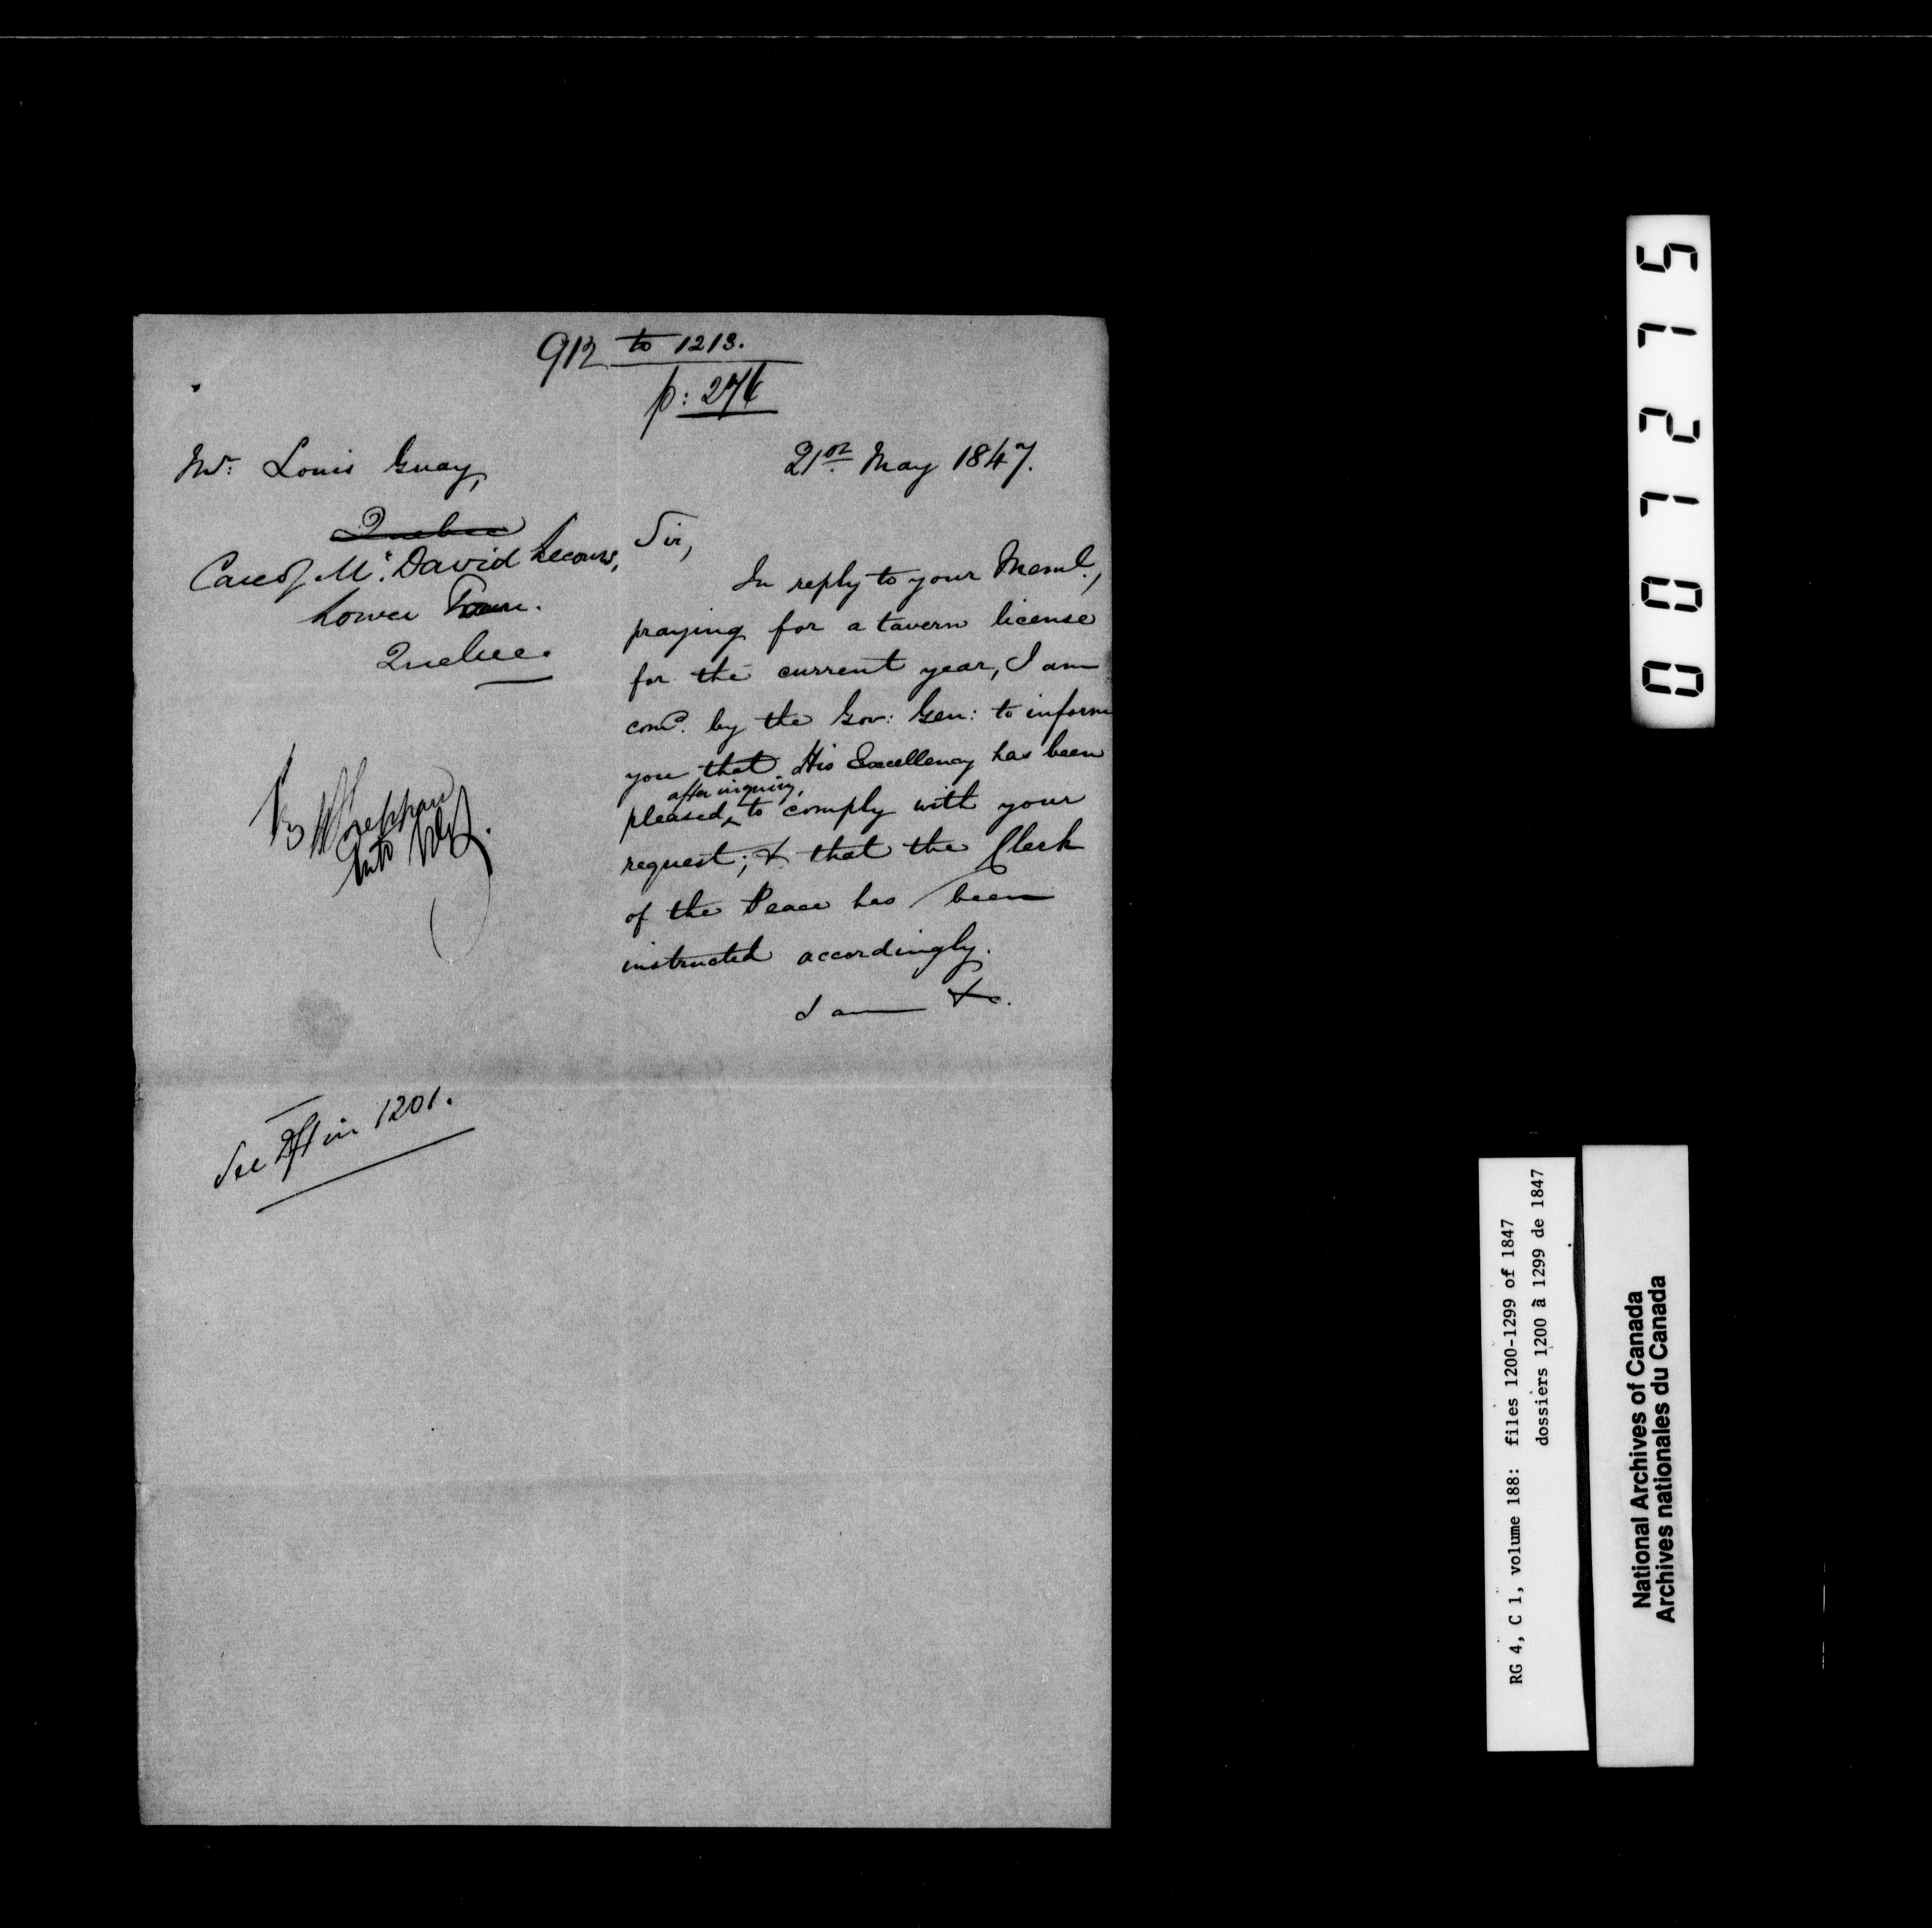 912 to 1213.
p: 276
Mr. Louis Guay,
21st May 1847.
Quebec
Care of Mr. David Lecours,
Lower Town.
Quebec.
Sir,
In reply to your Meml.,
praying for a tavern license
for the current year, I am
comd. by the Gov: Gen: to inform
you that His Excellency has been
after inquiry,
pleased, to comply with your
request; & that the Clerk
of the Peace has been
instructed accordingly.
I am &c.
See Dft in 1201.
001215
RG 4, C 1, volume 188: files 1200-1299 of 1847
dossiers 1200 à 1299 de 1847
National Archives of Canada
Archives nationales du Canada